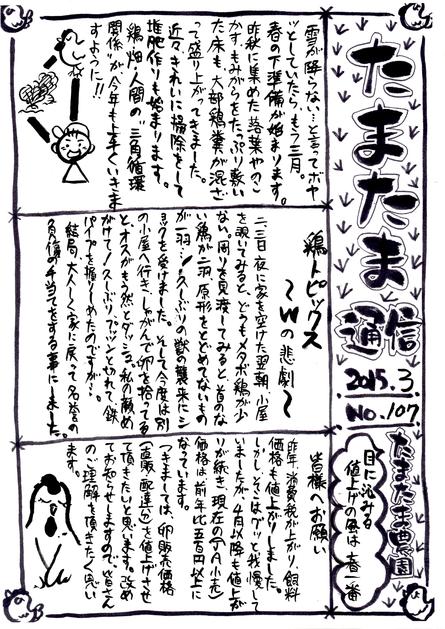 たまたま通信
2015.3.
No.107
たまたま農園
目に沁みる
値上げの風は春一番
雪が降らない…と言ってボヤ
ッとしていたら、もう三月。
春の下準備が始まります。
昨秋に集めた落葉やのこ
くず、もみがらをたっぷり敷い
た床も、大部鶏糞が混ざ
って盛り上がってきました。
近々きれいに掃除をして
堆肥作りも始まります。
鶏・畑・人間の"三角循環
関係"が今年も上手くいきま
すように!!
鶏トピックス
～Wの悲劇～
二三日夜に家を空けた翌朝、小屋
を覗いてみると、どうもメタボ鶏が少
ない。周りを見渡してみると首のな
い鶏が二羽、原形をとどめてないもの
が一羽…!久しぶりの獣の襲来にシ
ョックを受けました。そして今度は別
の小屋へ行き、しゃがんで卵を拾ってる
と、オスがもう然とダッシュ。私の額め
がけて!久しぶりプッツンと切れて、鉄
パイプを握りしめたのですが…。
結局、大人しく家に戻って名誉の
負傷の手当てをする事にしました。
皆様へお願い
昨年、消費税が上がり、飼料
価格も値上がりしました。
しかし、そこはグッと我慢して
いましたが、4月以降も値上が
りが続き、現在の(JA小売)
価格は前年比五百円以上に
なっています。
つきましては、卵販売価格
(直販、配達)を値上げさせ
て頂きたいと思います。改め
てお知らせしますので、皆さん
の、ご理解を頂きたく思い
ます。